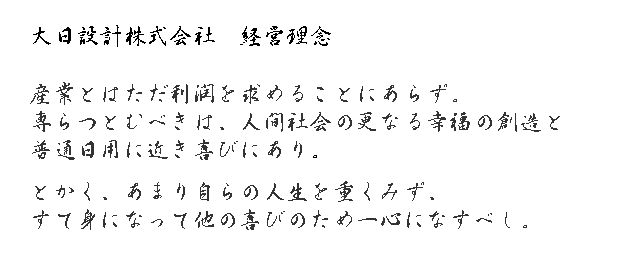 大日設計株式会社　経営理念
産業とはただ利潤を求めることにあらず。
専らつとむべきは、人間社会の更なる幸福の創造と
普通日用に近き喜びにあり。
とかく、あまり自らの人生を重くみず、
すて身になって他の喜びのため一心になすべし。